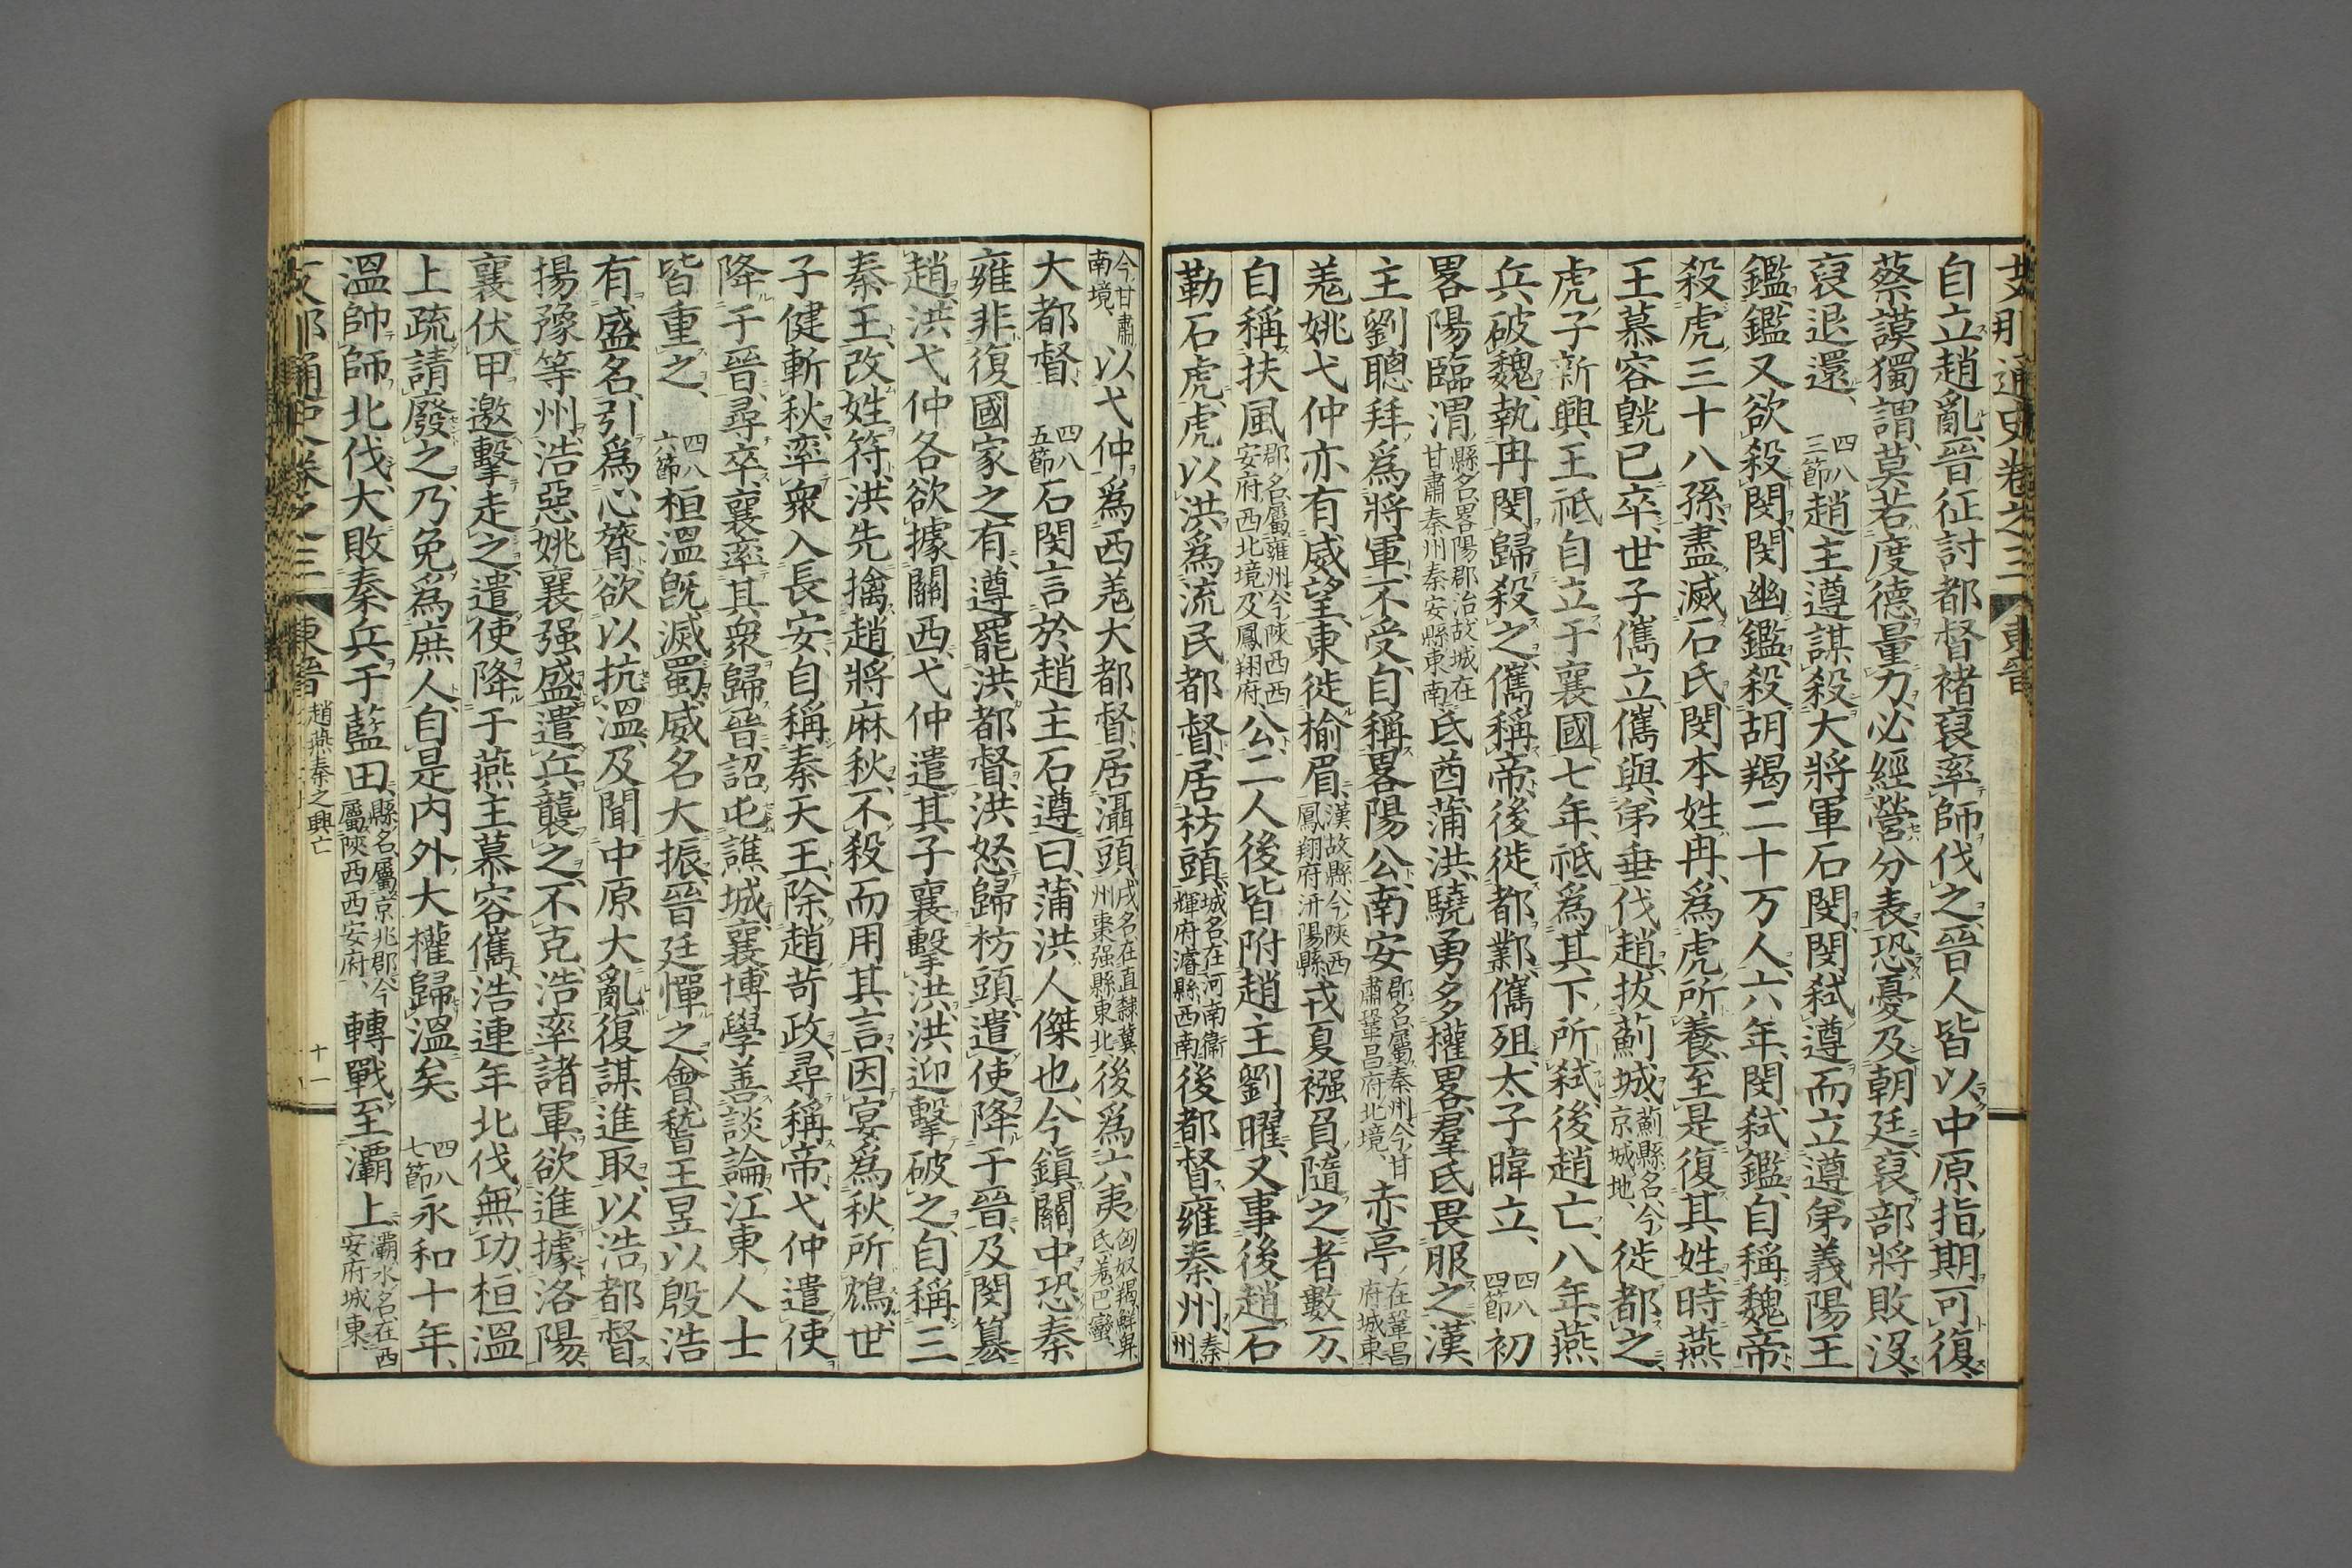 支那通史卷之三 東晉
自立趙亂晉征討都督褚裒率師伐之晉人皆以中原指期可復
蔡謨獨謂莫若度德量力必經營分表恐憂及朝廷裒部將敗沒
裒退還 四八三節 趙主遵謀殺大將軍石閔閔弒遵而立遵弟義陽王
鑑鑑又欲殺閔閔幽鑑殺胡羯二十万人六年閔弒鑑自稱魏帝
殺虎三十八孫盡滅石氏閔本姓冉爲虎所養至是復其姓時燕
王慕容皝已卒世子儁立儁與弟垂伐趙拔薊城薊縣名今京城地徙都之
虎子新興王祗自立于襄國七年祗爲其下所弒後趙亡八年燕
兵破魏執冉閔歸殺之儁稱帝後徙都鄴儁殂太子暐立 四八四節 初
畧陽臨渭縣名畧陽郡治故城在甘肅秦州秦安縣東南氐酋蒲洪驍勇多權畧羣氐畏服之漢
主劉聰拜爲將軍不受自稱畧陽公南安郡名屬秦州今甘肅鞏昌府北境赤亭在鞏昌府城東
羗姚弋仲亦有威望東徙榆眉漢故縣今陝西鳳翔府汧陽縣戎夏襁負隨之者數万
自稱扶風郡名屬雍州今陝西西安府西北境及鳳翔府公二人後皆附趙主劉曜又事後趙石
勒石虎虎以洪爲流民都督居枋頭城名在河南衞輝府濬縣西南後都督雍秦州秦州
今甘肅南境以弋仲爲西羗大都督居灄頭戌名在直隸冀州棗强縣東北後爲六夷匈奴羯鮮卑氐羗巴蠻
大都督 四八五節 石閔言於趙主石遵曰蒲洪人傑也今鎭關中恐秦
雍非復國家之有遵罷洪都督洪怒歸枋頭遣使降于晉及閔簒
趙洪弋仲各欲據關西弋仲遣其子襄擊洪洪迎擊破之自稱三
秦王改姓符洪先擒趙將麻秋不殺而用其言因宴爲秋所鴆世
子健斬秋率衆入長安自稱秦天王除趙苛政尋稱帝弋仲遣使
降于晉尋卒襄率其衆歸晉詔屯譙城襄博學善談論江東人士
皆重之 四八六節 桓溫既滅蜀威名大振晉廷憚之會稽王昱以殷浩
有盛名引爲心膂欲以抗溫及聞中原大亂復謀進取以浩都督
揚豫等州浩惡姚襄强盛遣兵襲之不克浩率諸軍欲進據洛陽
襄伏甲邀擊走之遣使降于燕主慕容儁浩連年北伐無功桓溫
上疏請廢之乃免爲庶人自是内外大權歸溫矣 四八七節 永和十年
溫帥師北伐大敗秦兵于藍田縣名屬京兆郡今屬陝西西安府轉戰至灞上灞水名在西安府城東
支那通史卷之三 東晉 趙燕秦之興亡 十一